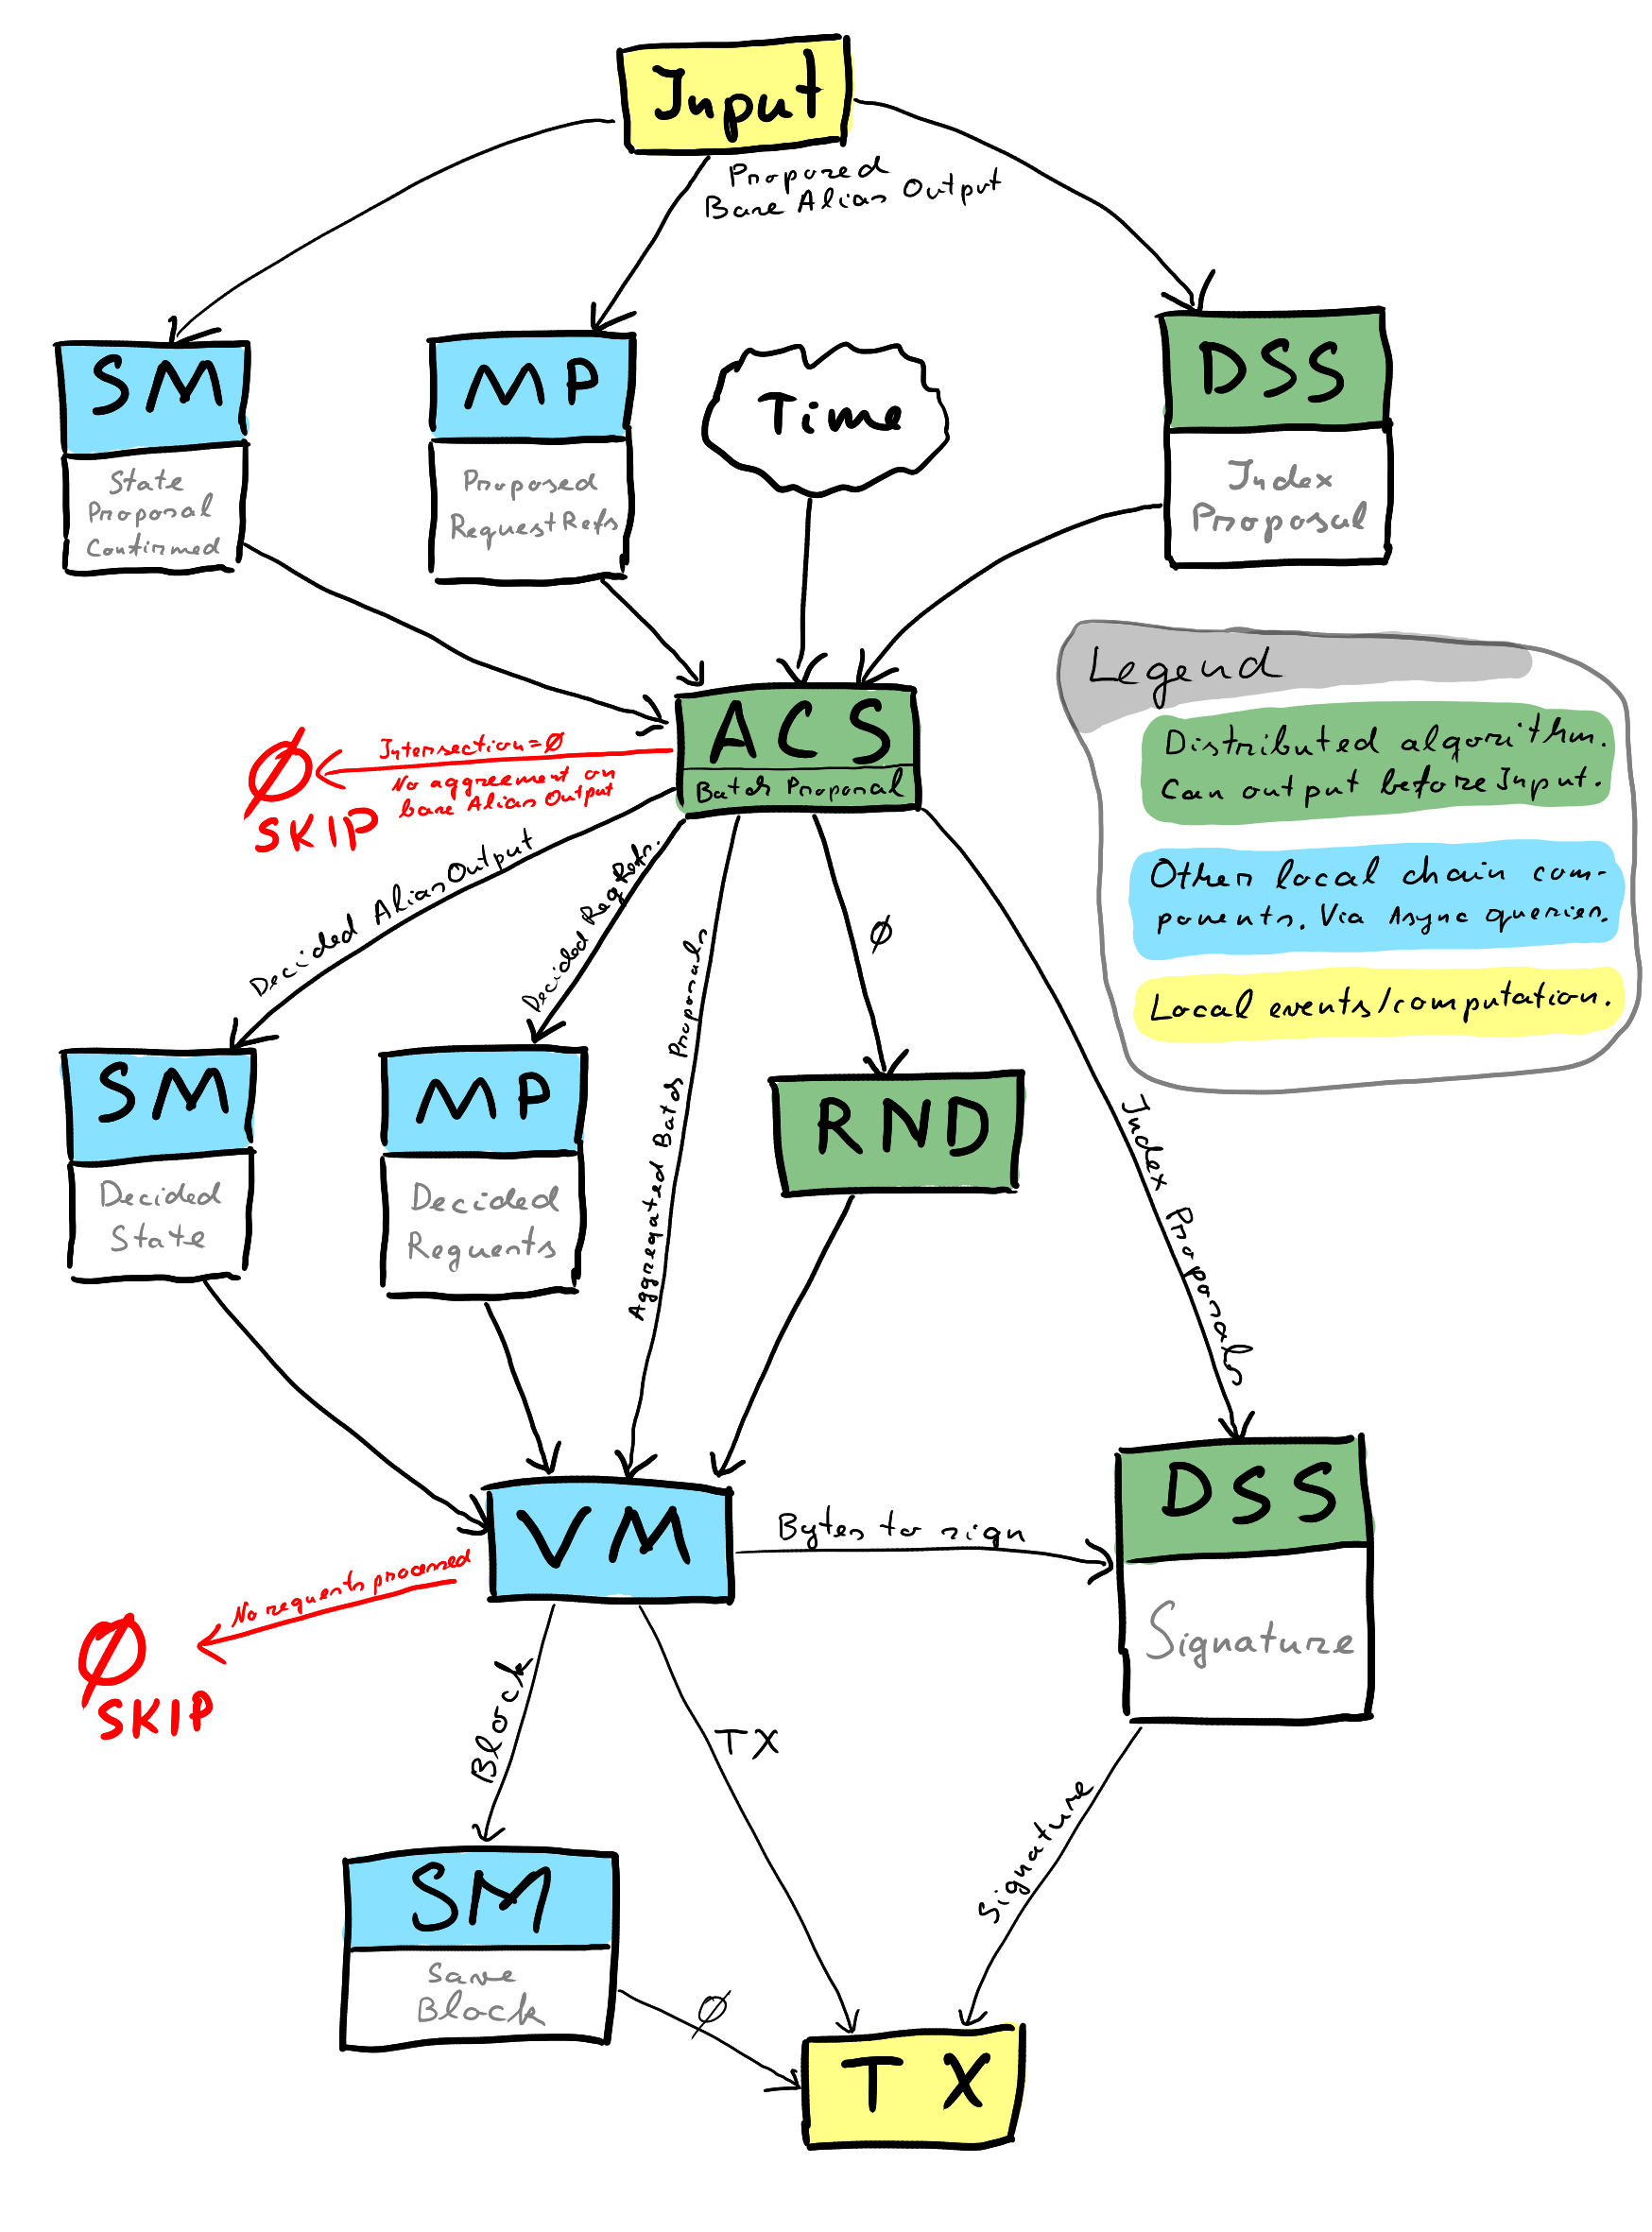 Input
Proposed
Base Alias Output
SM
State
Proposal
Confirmed
MP
Proposed
RequestRefs
Time
DSS
Index
Proposal
Legend
Distributed algorithm.
Can output before Input.
Other local chain com-
ponents. Via Async queries.
Local events/computation.
ACS
Batch Proposal
Intersection=∅
No aggreement on
base Alias Output
∅
SKIP
Decided AliasOutput
Decided ReqRefs.
Aggregated Batch Proposals
∅
Index Proposals
SM
Decided
State
MP
Decided
Requests
RND
VM
Bytes to sign
DSS
Signature
No requests processed
∅
SKIP
Block
TX
Signature
SM
Save
Block
∅
TX